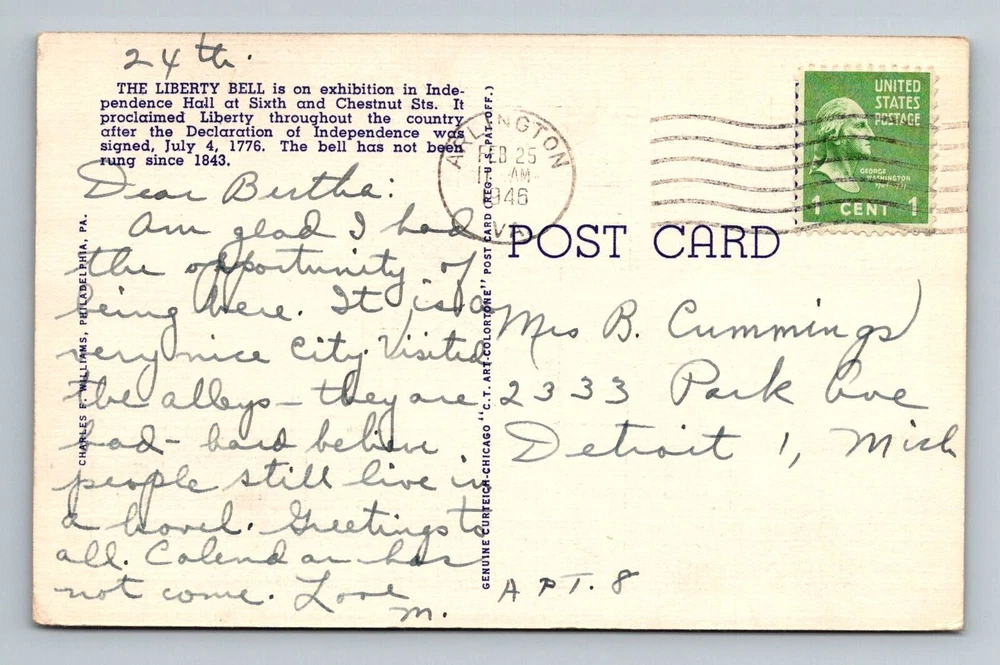 24th.
THE LIBERTY BELL is on exhibition in Inde-
pendence Hall at Sixth and Chestnut Sts. It
proclaimed Liberty throughout the country
after the Declaration of Independence was
signed, July 4, 1776. The bell has not been
rung since 1843.
Dear Bertha:
Am glad I had
the opportunity of
being here. It is a
very nice city. Visited
the alleys — they are
bad - hard believe
people still live in
a hovel. Greetings to
all. Calendar has
not come. Love
M.
CHARLES F. WILLIAMS, PHILADELPHIA, PA.
GENUINE CURTEICH-CHICAGO "C.T. ART-COLORTONE" POST CARD (REG. U.S. PAT. OFF.)
ARLINGTON
FEB 25
AM
1946
VA.
UNITED
STATES
POSTAGE
GEORGE
WASHINGTON
1 CENT 1
POST CARD
Mrs B. Cummings
2333 Park Ave
Detroit 1, Mich
APT. 8